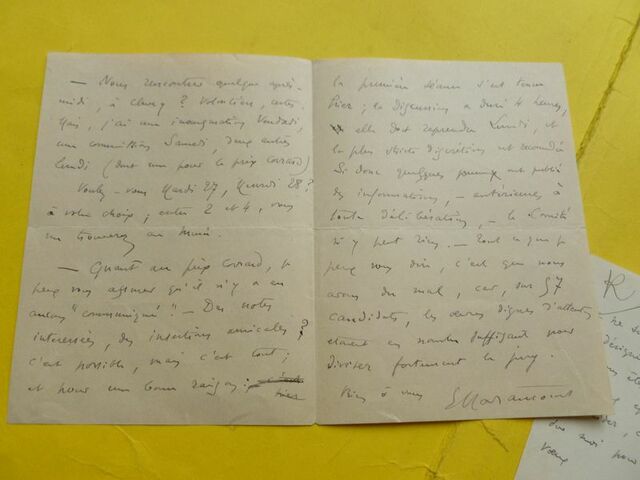 — Nous rencontrer quelque après-
midi, à Cluny ? Volontiers, certes.
Mais, j'ai une inauguration Vendredi,
une commission Samedi, deux autres
Lundi (dont une pour le prix
Voulez-vous Mardi 27, Mercredi 28 ?
à votre choix ; entre 2 et 4, vous
me trouverez au Musée.
— Quant au prix je
peux vous affirmer qu'il n'y a eu
aucun "communiqué" — Des notes
intéressées, des insertions amicales ?
c'est possible, mais c'est tout ;
et pour une bonne raison :
la première séance s'est tenue
hier ; la discussion a duré 4 heures,
elle doit reprendre Lundi, et
la plus stricte discrétion est
Si donc quelques journaux ont publié
des informations, — antérieures à
toute délibération, — le Comité
n'y peut rien. — Tout ce que je
peux vous dire, c'est que nous
avons du mal, car, sur 57
candidats, les œuvres dignes d'attention
étaient en nombre suffisant pour
diviser fortement le jury.
Bien à vous
EHaraucourt
R
moi pour